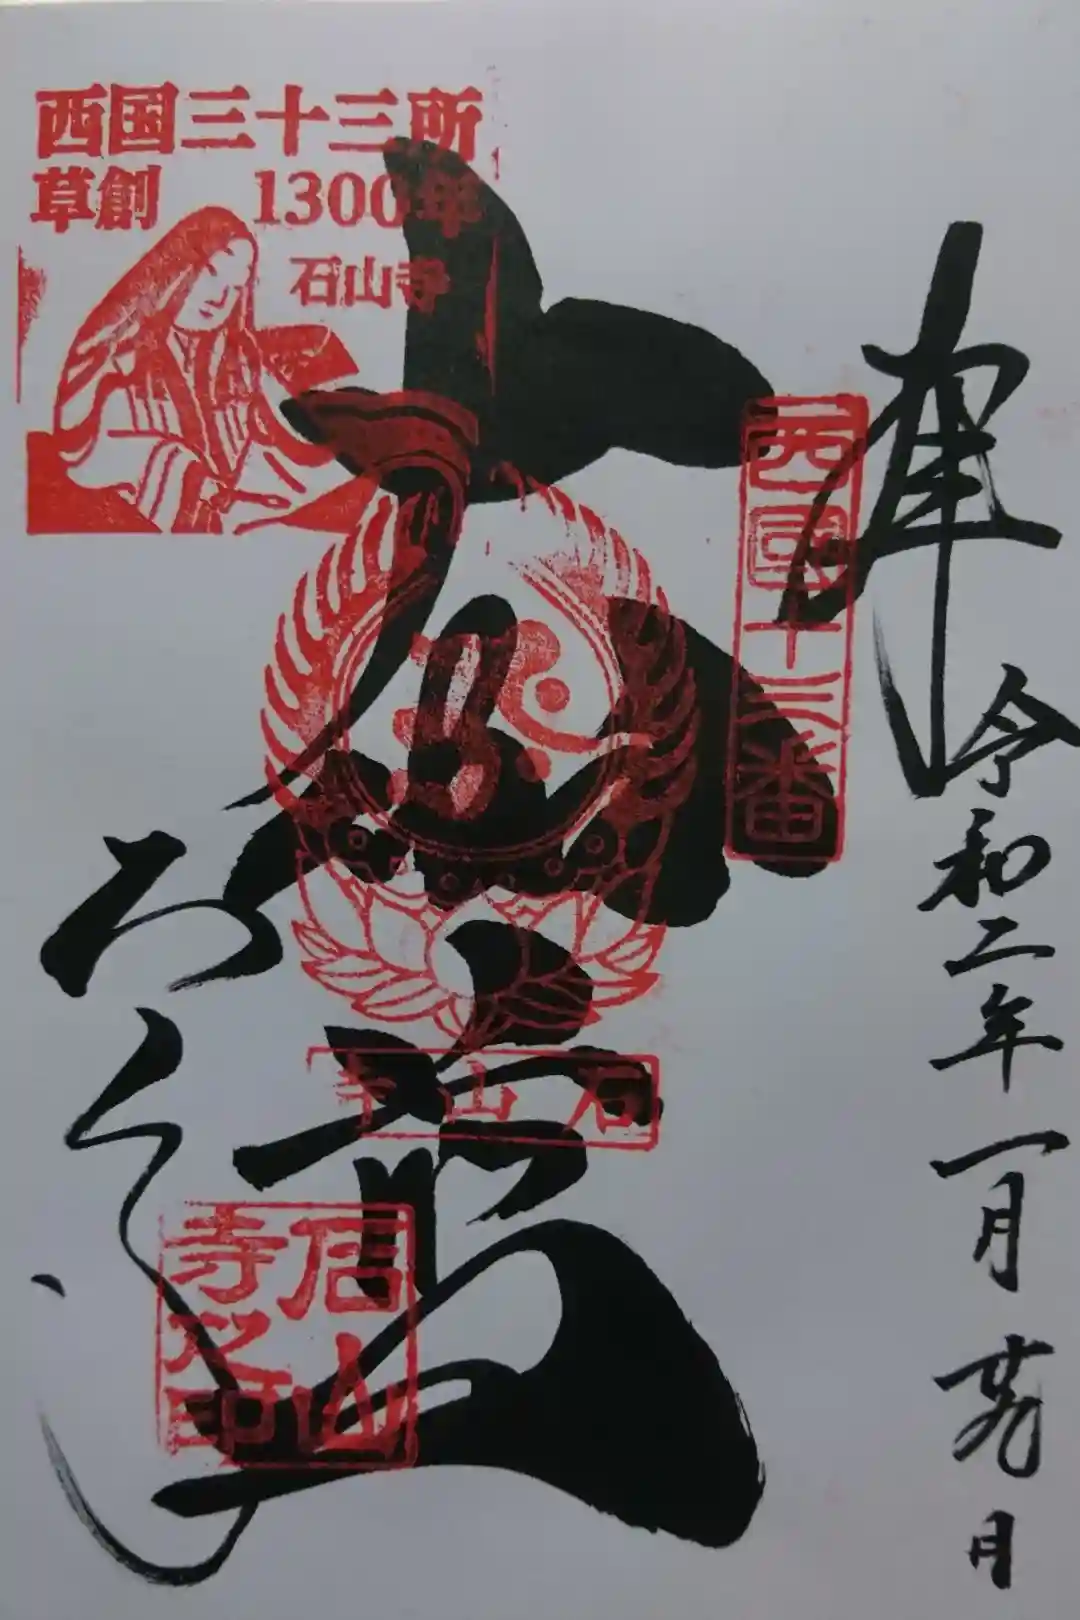 西国三十三所
草創 1300年
石山寺
西國十三番
奉拝
令和二年一月廿九日
大悲殿
石山寺
石山寺之印